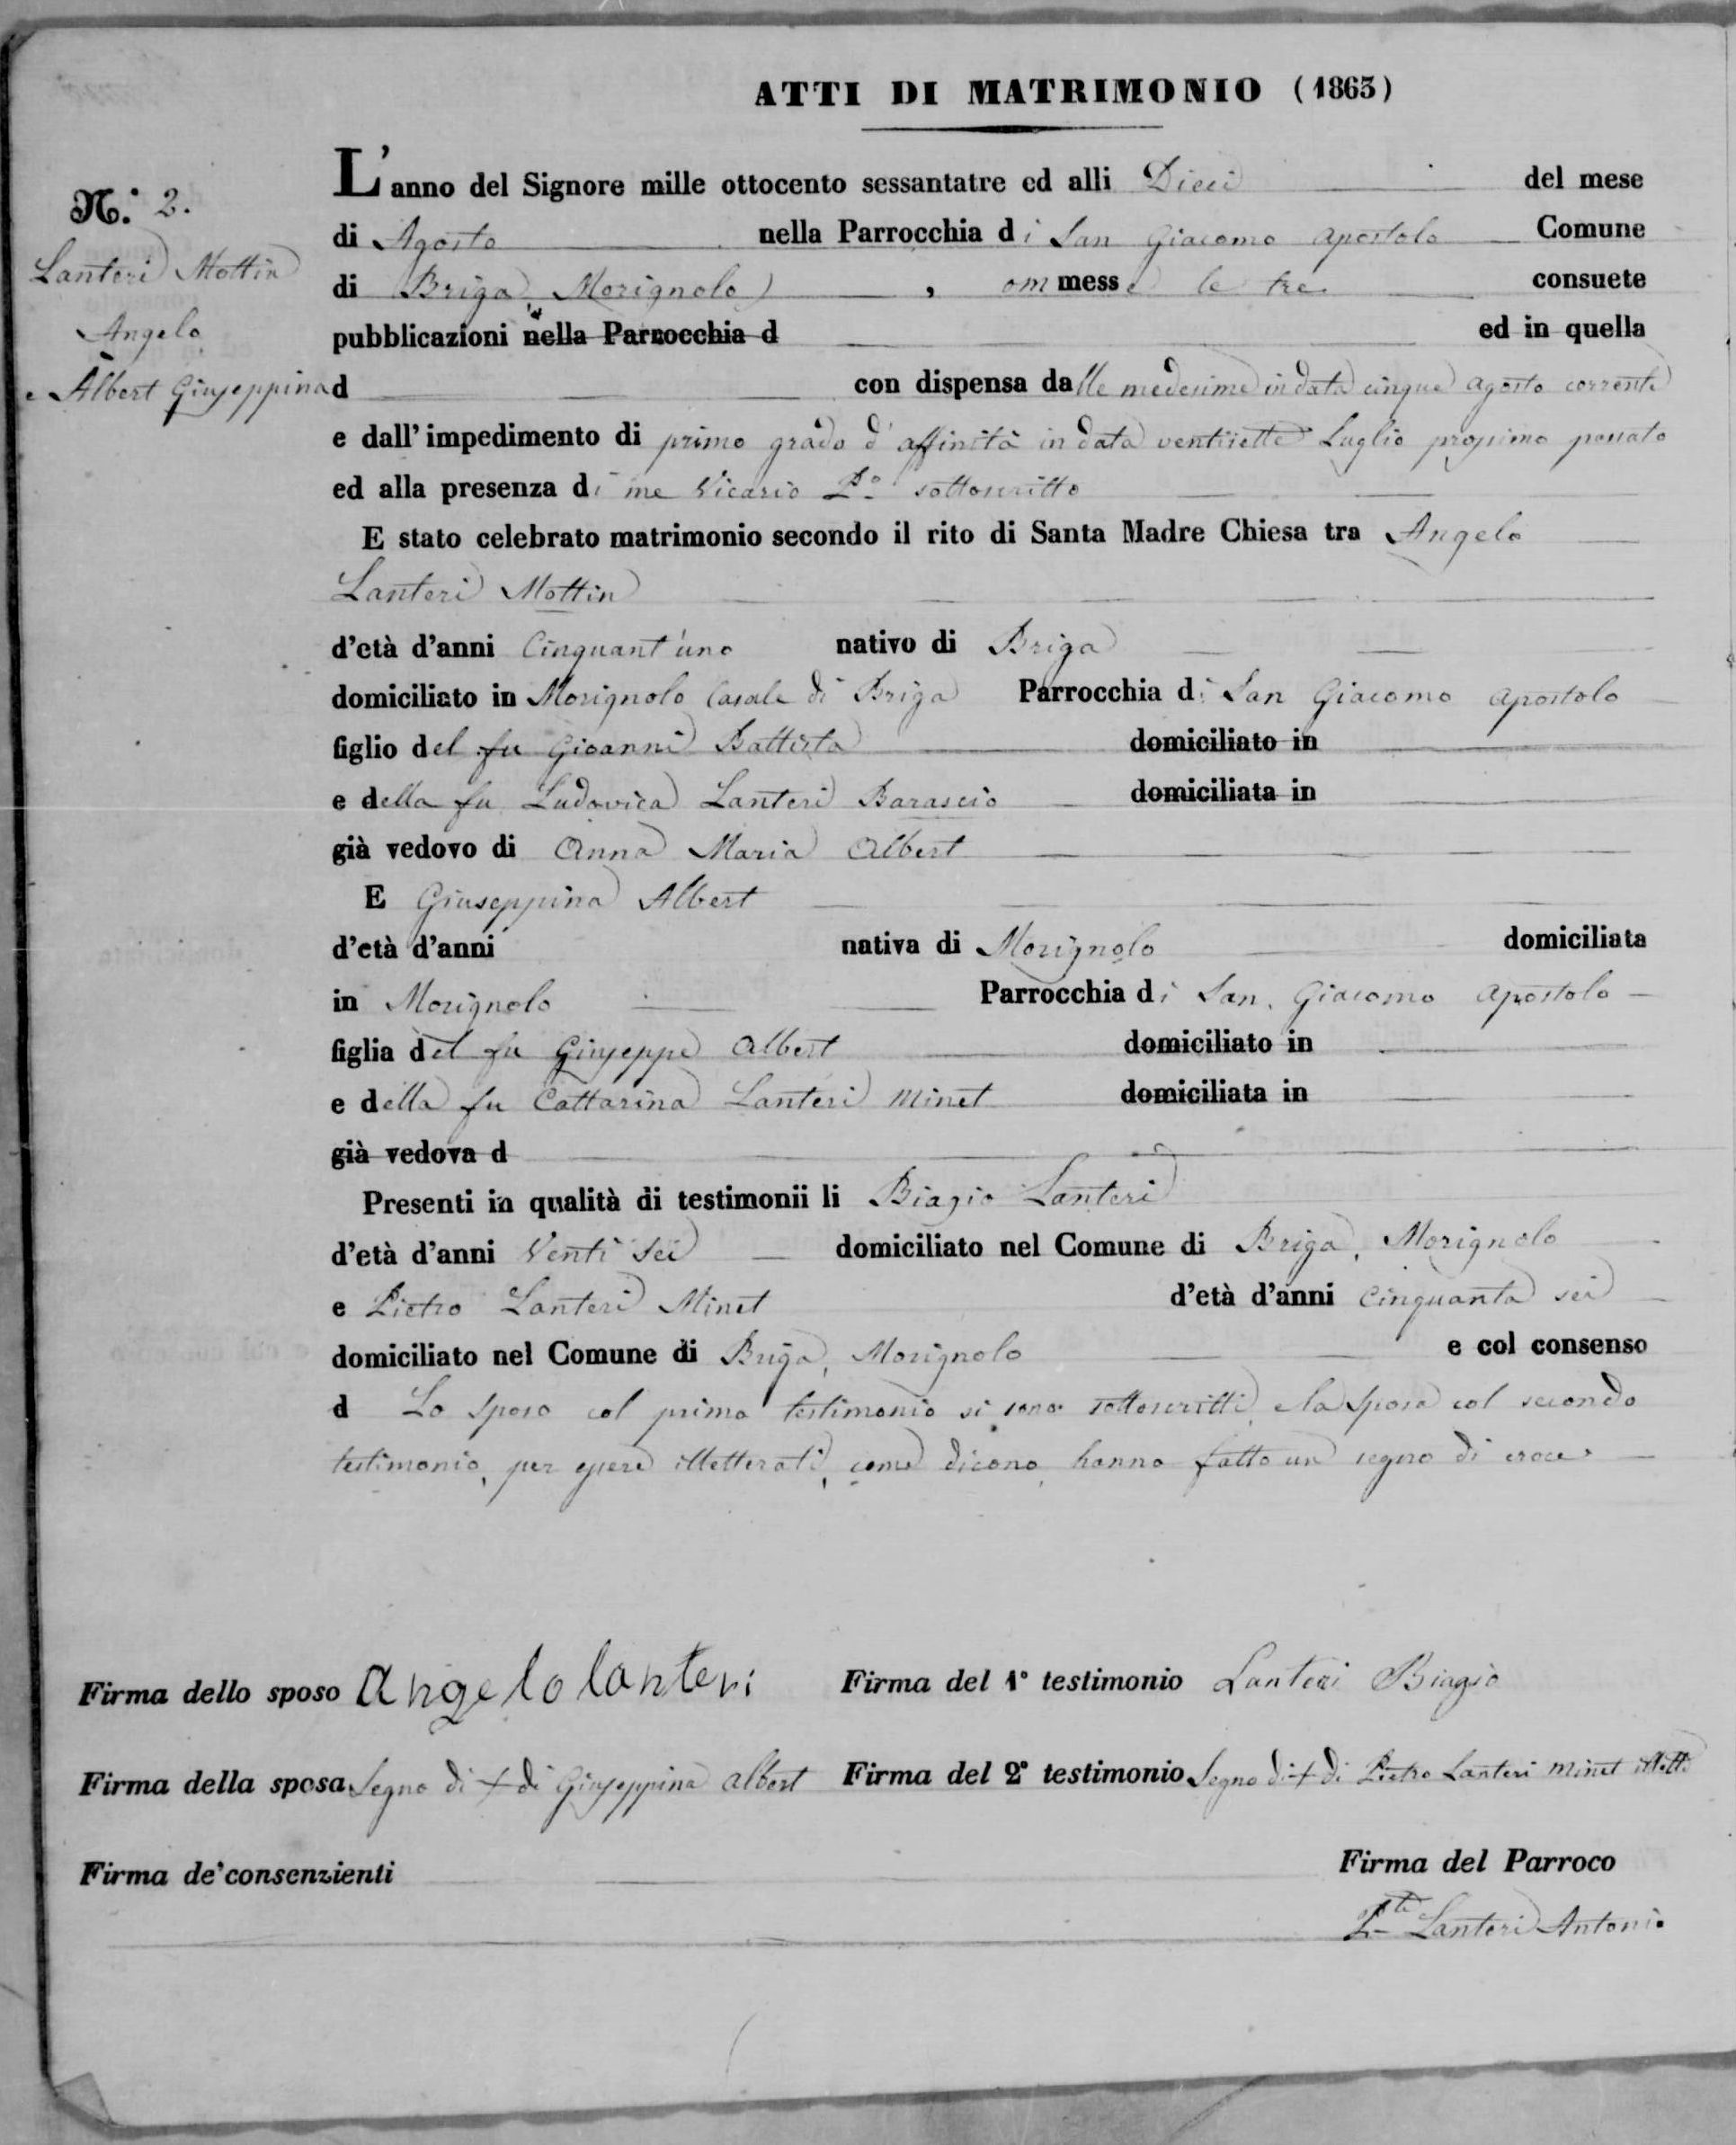 ATTI DI MATRIMONIO (1863)
N.° 2.
Lanteri Mottin
Angelo
e Albert Giuseppina
L'anno del Signore mille ottocento sessantatre ed alli Dieci del mese
di Agosto nella Parrocchia di San Giacomo Apostolo Comune
di Briga, Morignolo, ommesse le tre consuete
pubblicazioni nella Parrocchia d ed in quella
d con dispensa dalle medesime in data cinque agosto corrente
e dall'impedimento di primo grado d'affinità in data ventisette Luglio prossimo passato
ed alla presenza di me Vicario P.° sottoscritto
E stato celebrato matrimonio secondo il rito di Santa Madre Chiesa tra Angelo
Lanteri Mottin
d'età d'anni Cinquant'uno nativo di Briga
domiciliato in Morignolo Casale di Briga Parrocchia di San Giacomo Apostolo
figlio del fu Gioanni Battista domiciliato in
e della fu Ludovica Lanteri Barascio domiciliata in
già vedovo di Anna Maria Albert
E Giuseppina Albert
d'età d'anni nativa di Morignolo domiciliata
in Morignolo Parrocchia di San Giacomo Apostolo
figlia del fu Giuseppe Albert domiciliato in
e della fu Cattarina Lanteri Minet domiciliata in
già vedova d
Presenti in qualità di testimonii li Biagio Lanteri
d'età d'anni Venti sei domiciliato nel Comune di Briga, Morignolo
e Pietro Lanteri Minet d'età d'anni Cinquanta sei
domiciliato nel Comune di Briga, Morignolo e col consenso
d Lo sposo col primo testimonio si sono sottoscritti, e la sposa col secondo
testimonio, per essere illetterati, come dicono, hanno fatto un segno di croce.
Firma dello sposo Angelo lanteri Firma del 1° testimonio Lanteri Biagio
Firma della sposa Segno di + di Giuseppina Albert Firma del 2° testimonio Segno di + di Pietro Lanteri Minet
Firma de' consenzienti Firma del Parroco
Lanteri Antonio